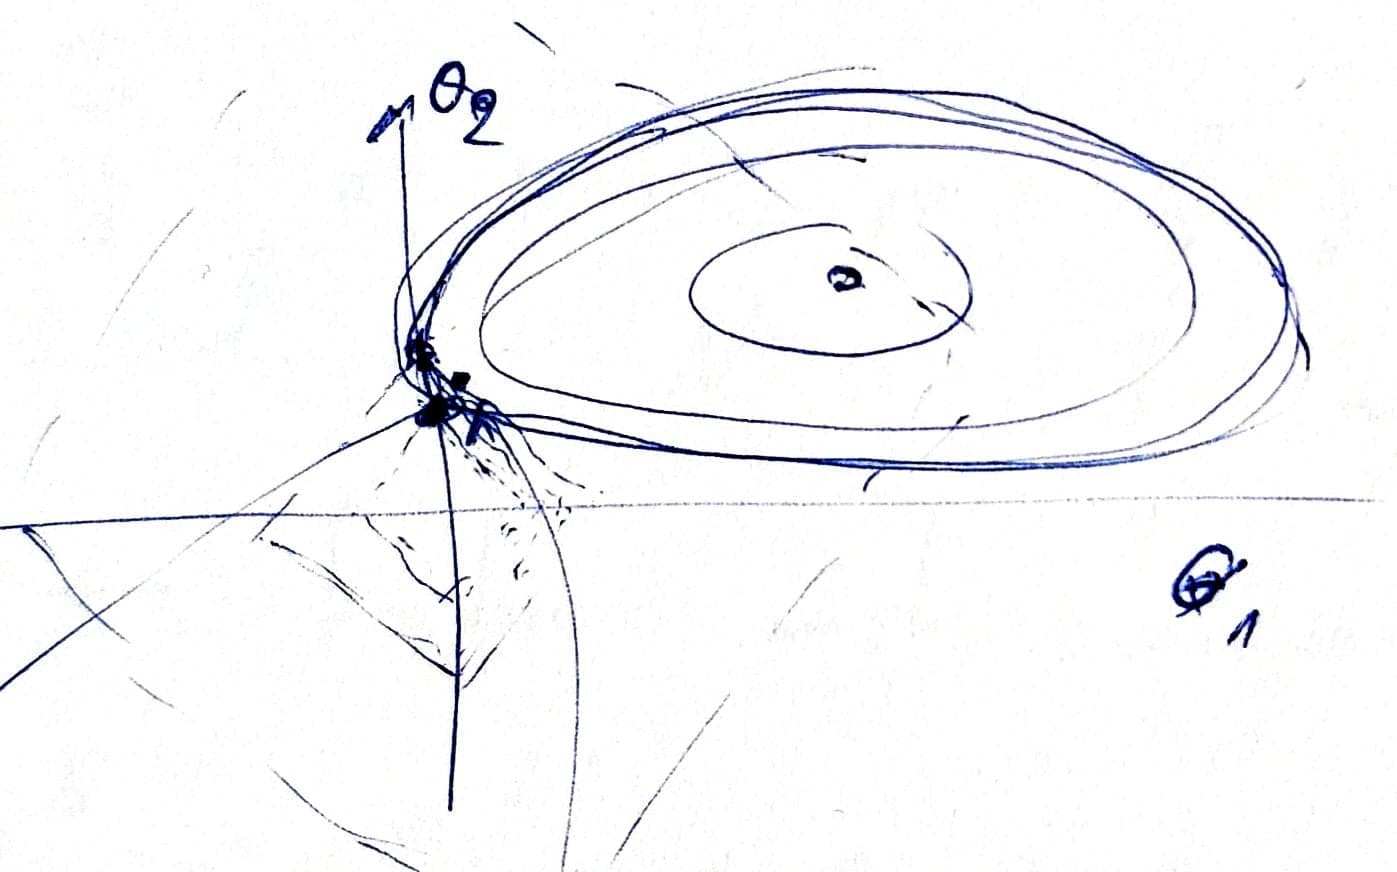 θ2
θ1